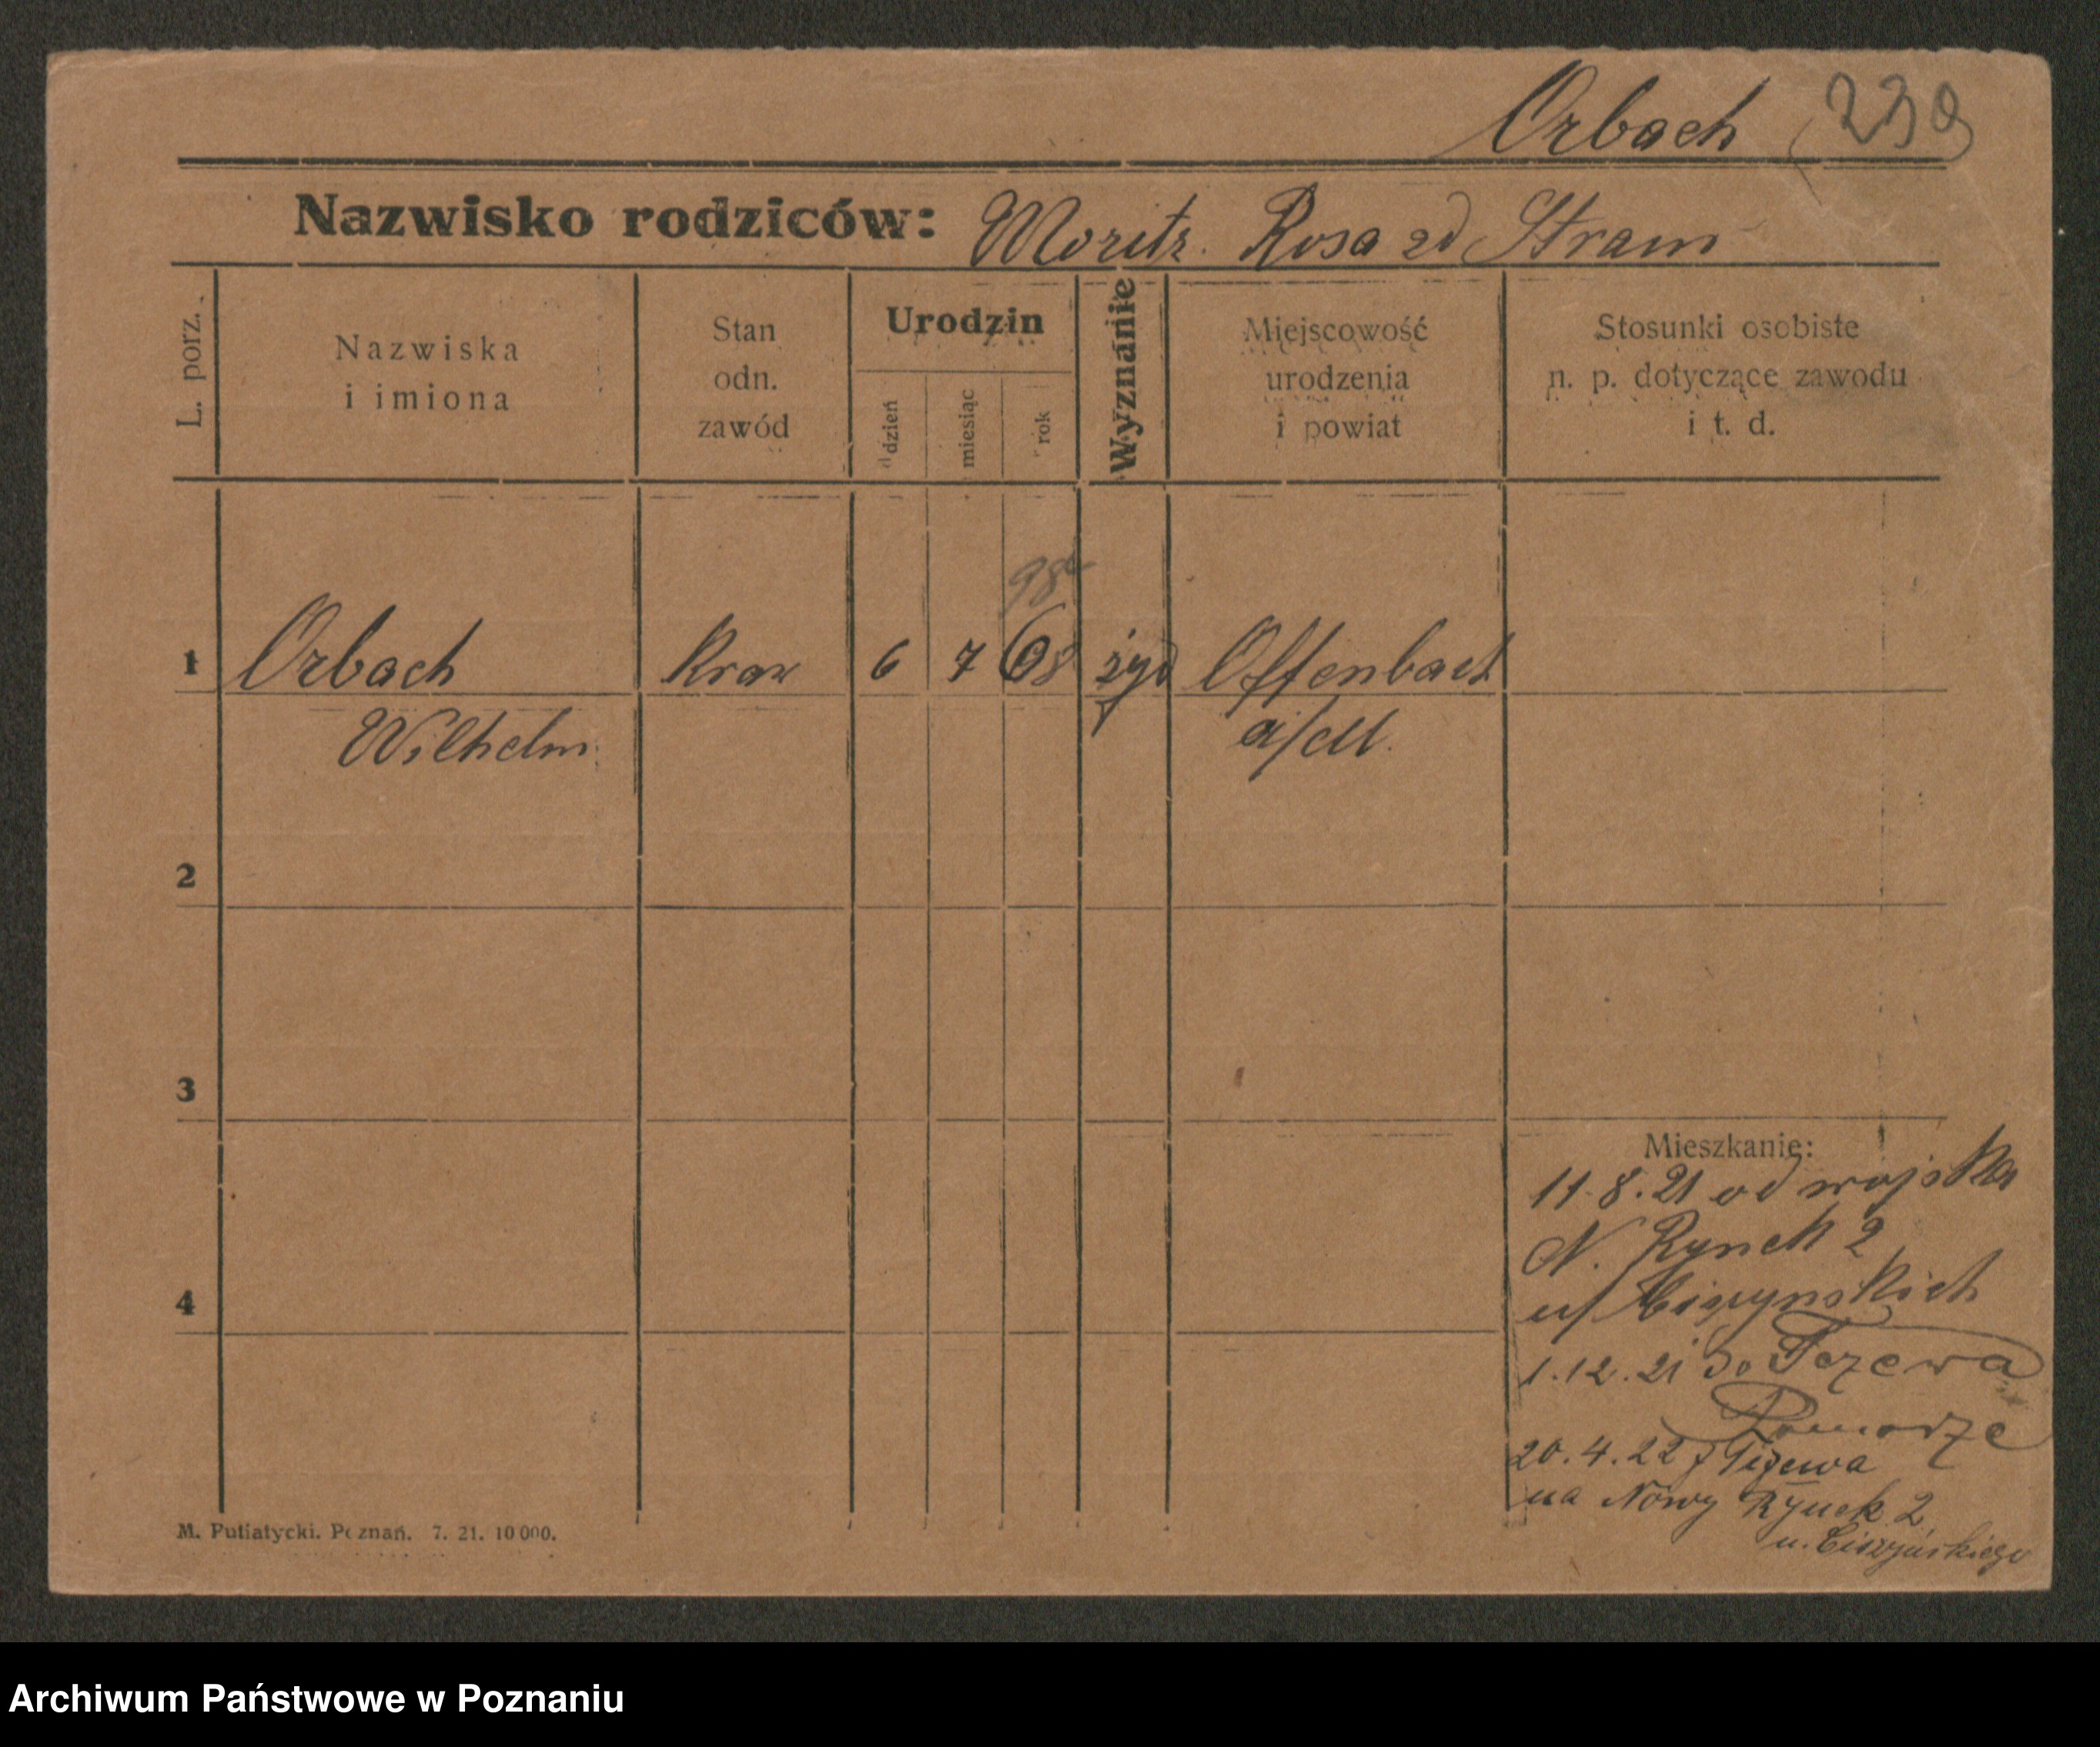 Orbach 239
Nazwisko rodziców: Moritz. Rosa zd Stram
L. porz.
Nazwiska
i imiona
Stan
odn.
zawód
Urodzin
dzień
miesiąc
rok
Wyznanie
Miejscowość
urodzenia
i powiat
Stosunki osobiste
n. p. dotyczące zawodu
i t. d.
98
1 Orbach Kraw 6 7 98 żyd Offenbach
Wilhelm a/M.
2
3
Mieszkanie:
11.8.21 od wojska
N. Rynek 2
4
1.12.21 do Tczewa
Pomorze
20.4.22 z Tczewa
na Nowy Rynek 2
M. Putiatycki. Poznań. 7. 21. 10 000.
Archiwum Państwowe w Poznaniu